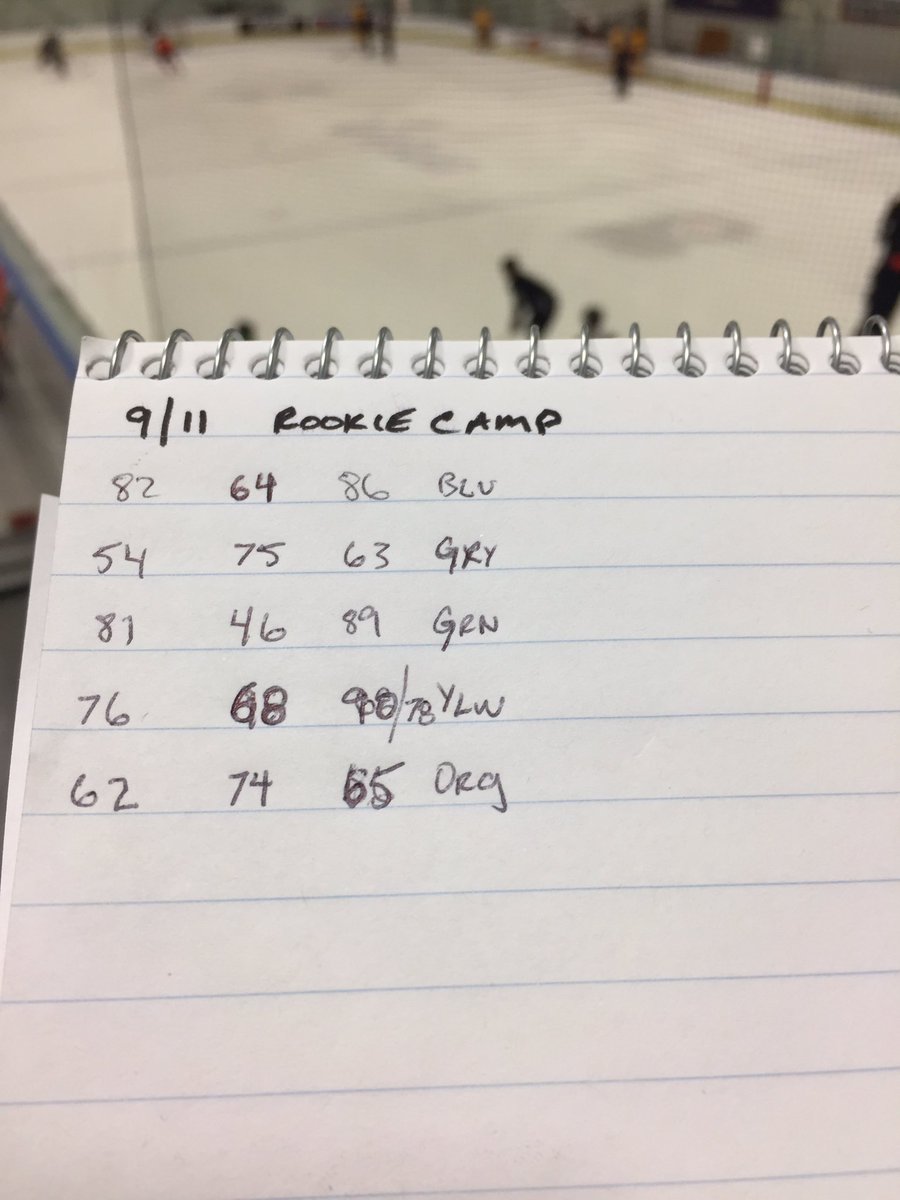 9/11 ROOKIE CAMP
82 64 86 BLU
54 75 63 GRY
81 46 89 GRN
76 68 /78 YLW
62 74 65 ORG